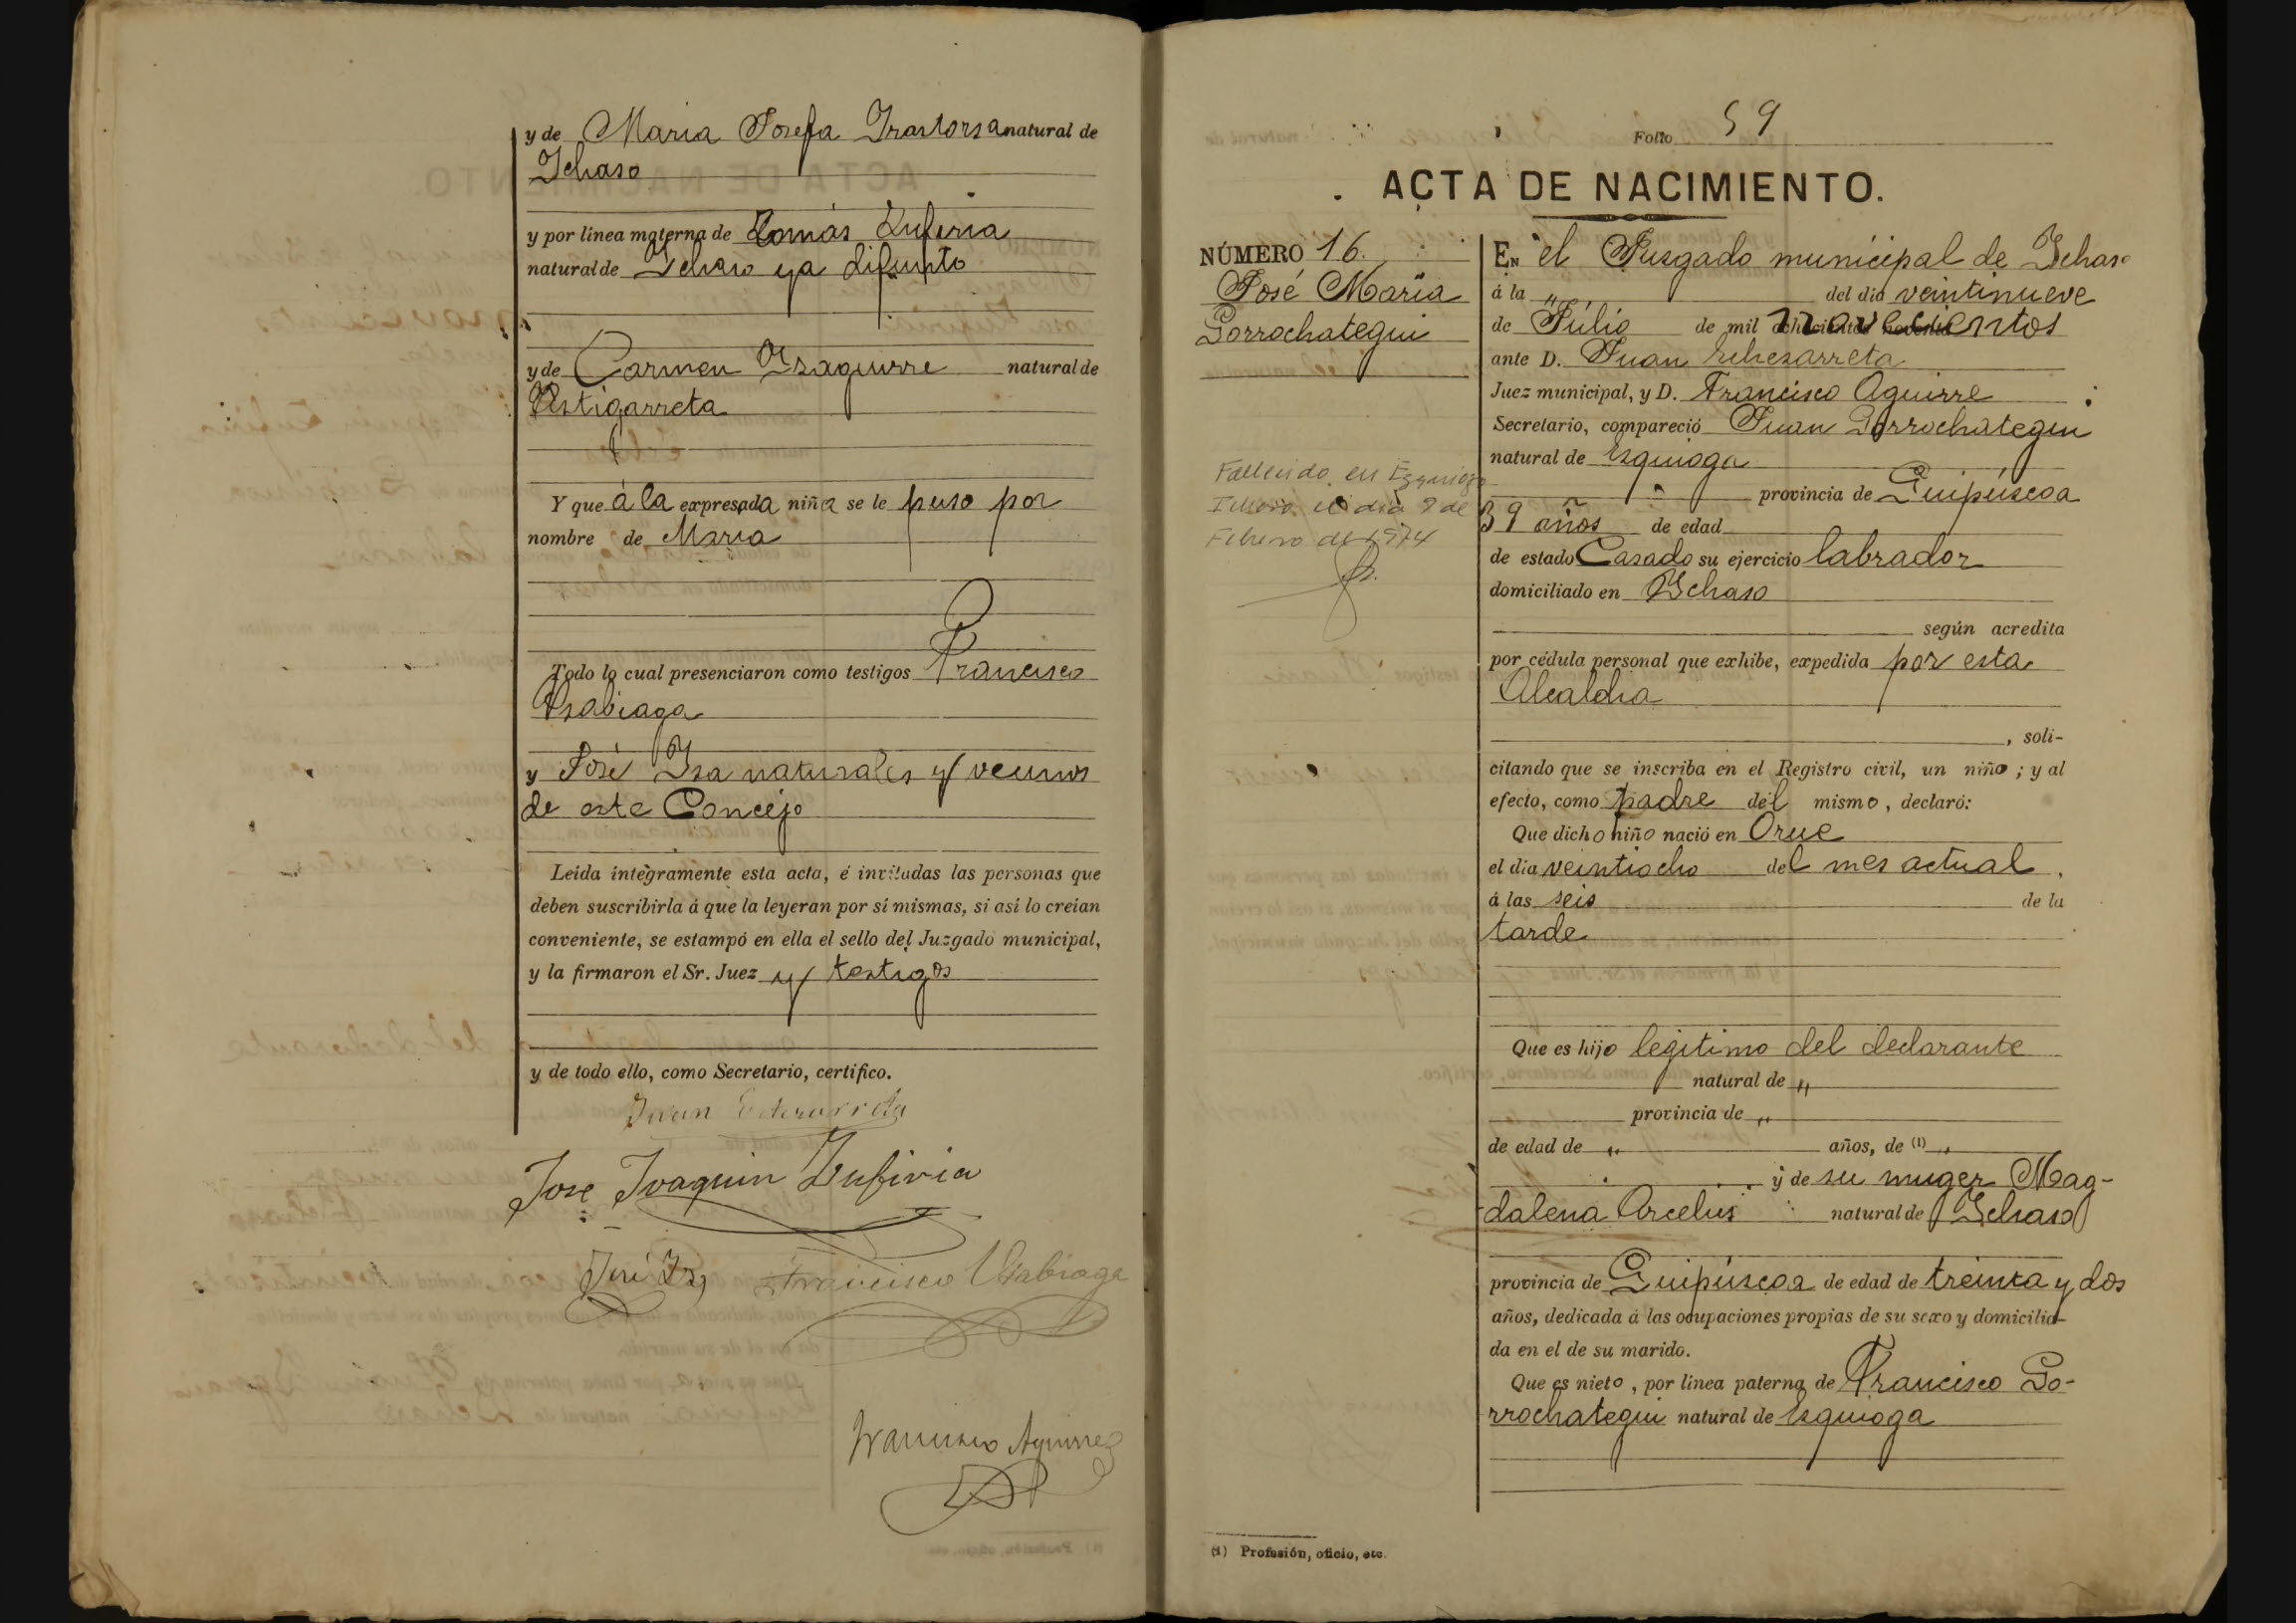 y de Maria Josefa Irastorsa natural de
Ichaso
y por línea materna de Tomás Lufiria
natural de Ichaso ya difunto
y de Carmen Ysaguirre natural de
Astigarreta
Y que á la expresada niña se le puso por
nombre de Maria
Todo lo cual presenciaron como testigos Francisco
Usabiaga
y José Isa naturales y vecinos
de este Concejo
Leída íntegramente esta acta, é invitadas las personas que
deben suscribirla á que la leyeran por sí mismas, si así lo creían
conveniente, se estampó en ella el sello del Juzgado municipal,
y la firmaron el Sr. Juez y testigos
y de todo ello, como Secretario, certifico.
Juan Echezarreta
Jose Joaquin Lufiria
José Isa Francisco Usabiaga
Francisco Aguirre
Folio 59
ACTA DE NACIMIENTO.
NÚMERO 16.
José Maria
Gorrochategui
Fallecido en Ezquioga
Ichaso el dia 9 de
Febrero de 1974
En el Jusgado municipal de Ichaso
á la „ del día veintinueve
de Júlio de mil novecientos
ante D. Juan Echezarreta
Juez municipal, y D. Francisco Aguirre
Secretario, compareció Juan Gorrochategui
natural de Esquioga
provincia de Guipúscoa
39 años de edad
de estado Casado su ejercicio labrador
domiciliado en Ichaso
según acredita
por cédula personal que exhibe, expedida por esta
Alcaldia
, soli-
citando que se inscriba en el Registro civil, un niño ; y al
efecto, como padre del mismo , declaró:
Que dicho niño nació en Orue
el día veintiocho del mes actual ,
á las seis de la
tarde
Que es hijo legitimo del declarante
natural de „
provincia de „
de edad de „ años, de (1) „
y de su muger Mag-
dalena Arcelus natural de Ichaso
provincia de Guipúscoa de edad de treinta y dos
años, dedicada á las ocupaciones propias de su sexo y domicilia-
da en el de su marido.
Que es nieto , por línea paterna de Francisco Go-
rrochategui natural de Esquioga
(1) Profesión, oficio, etc.